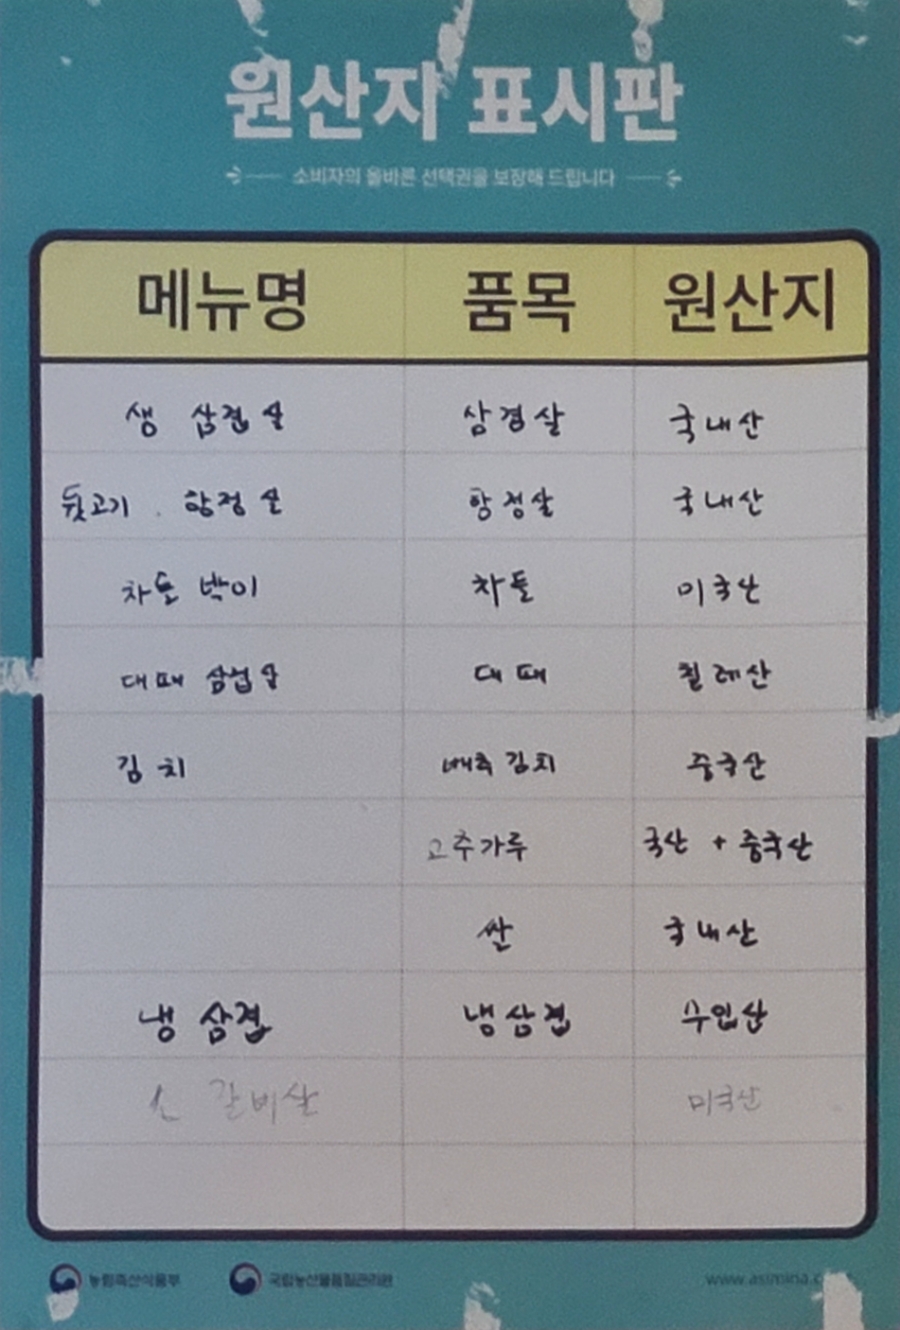 원산지 표시판
소비자의 올바른 선택권을 보장해 드립니다
메뉴명 품목 원산지
생 삼겹살 삼겹살 국내산
뒷고기 . 항정살 항정살 국내산
차돌 박이 차돌 미국산
대패 삼겹살 대패 칠레산
김치 배추김치 중국산
고추가루 국산 + 중국산
쌀 국내산
냉 삼겹 냉삼겹 수입산
소 갈비살 미국산
농림축산식품부 국립농산물품질관리원